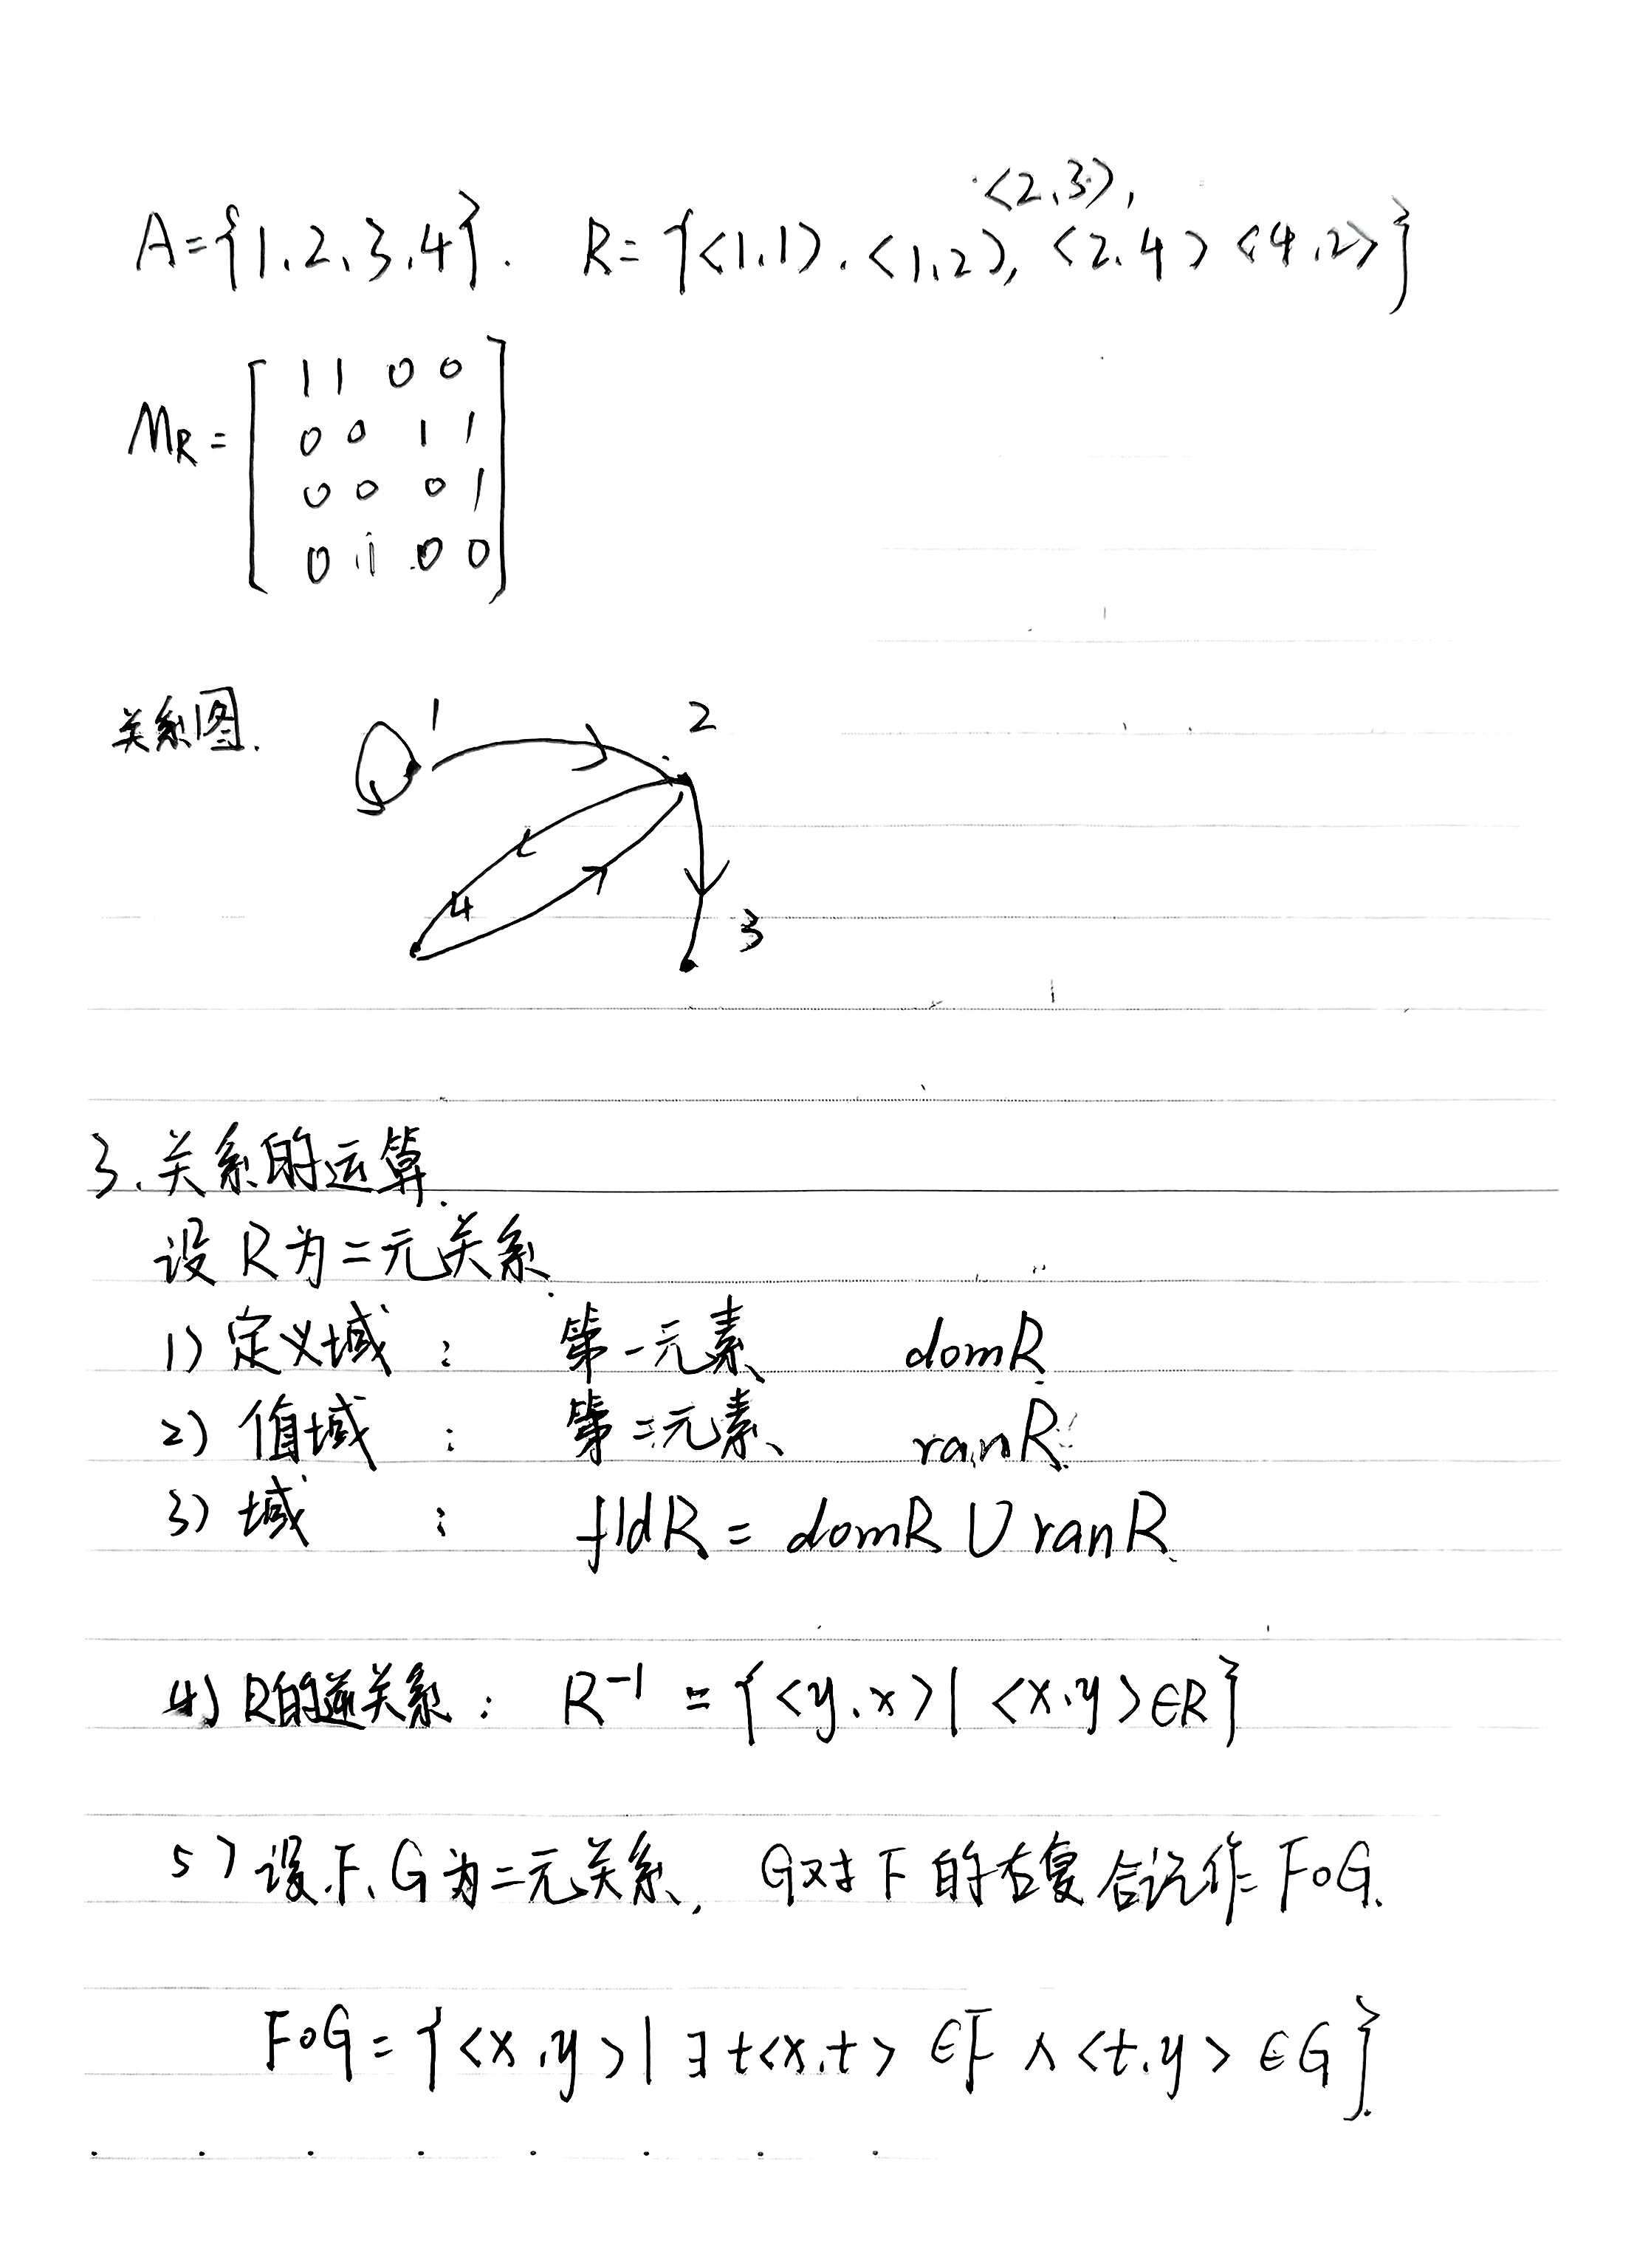 <2,3>,
A={1,2,3,4}. R={<1,1>,<1,2>,<2,4><4,2>}
M_R=[
1 1 0 0
0 0 1 1
0 0 0 1
0 1 0 0
]
关系图.
1 2
4 3
3、关系的运算.
设R为二元关系.
1) 定义域 : 第一元素 domR
2) 值域 : 第二元素 ranR
3) 域 : fldR = domR ∪ ranR
4) R的逆关系: R⁻¹ = {<y,x>| <x,y>∈R}
5) 设F、G为二元关系, G对F的右复合记作F∘G.
F∘G={<x,y>|∃t<x,t>∈F∧<t,y>∈G}